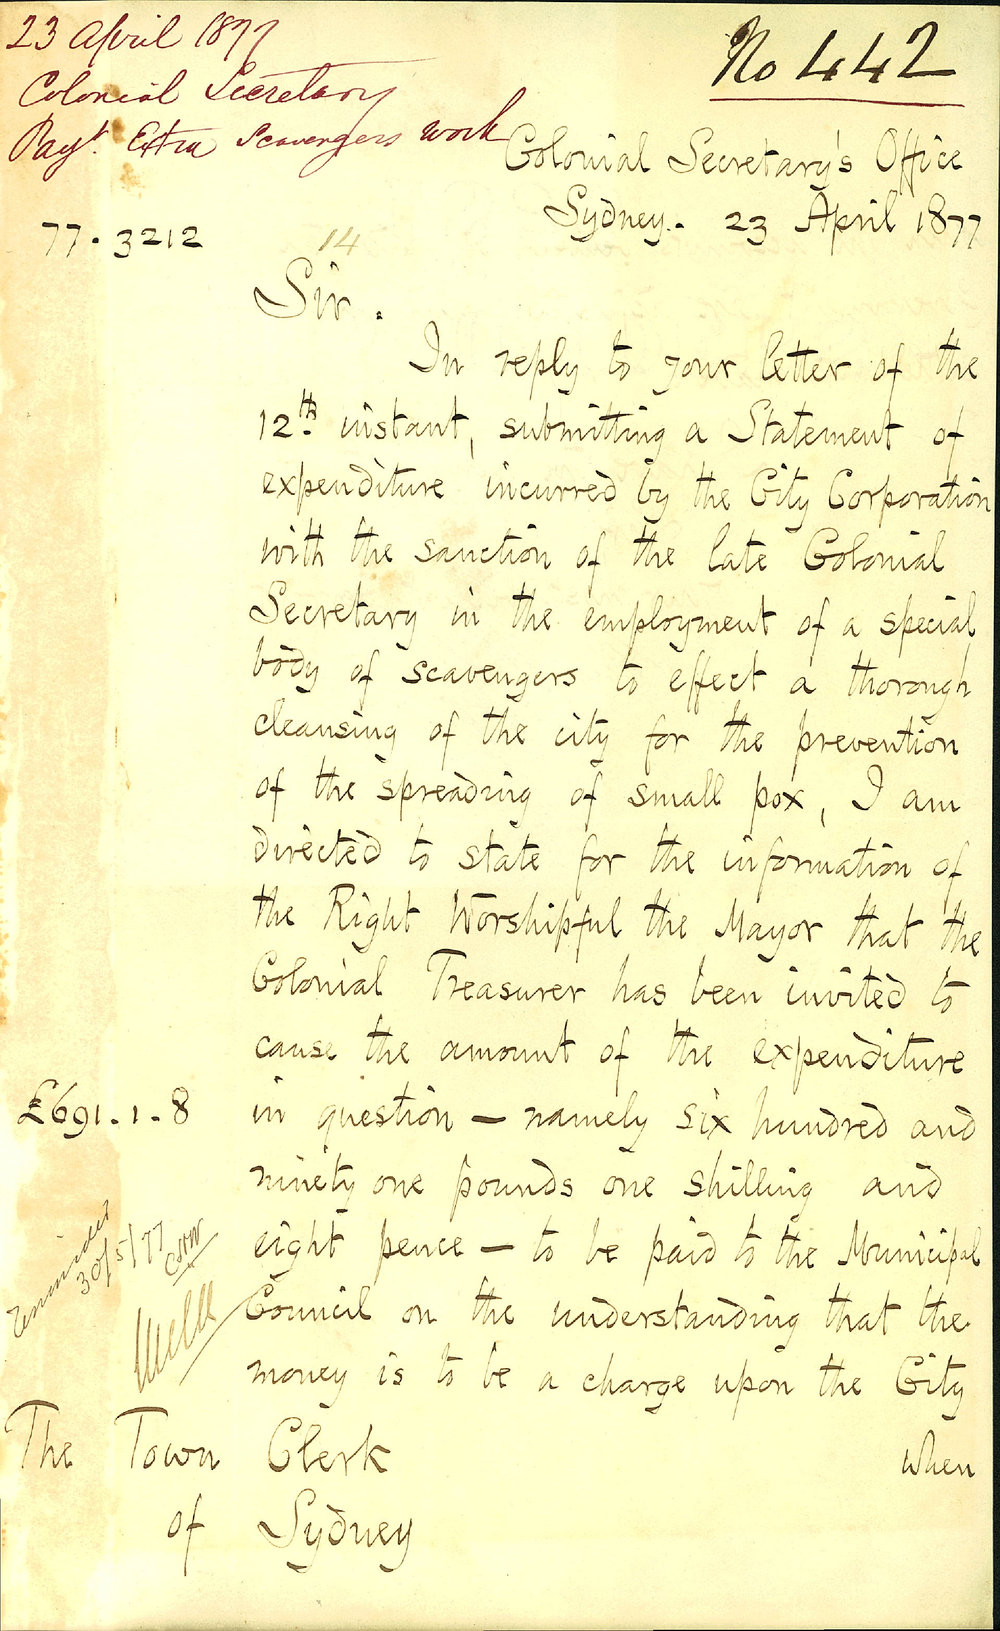 23 April 1877
Colonial Secretary
Payt. Extra Scavengers work
No 442
Colonial Secretary's Office
Sydney. 23 April 1877
77.3212
14
Sir.
In reply to your letter of the
12th instant, submitting a Statement of
expenditure incurred by the City Corporation
with the sanction of the late Colonial
Secretary in the employment of a special
body of scavengers to effect a thorough
cleansing of the city for the prevention
of the spreading of small pox, I am
directed to state for the information of
the Right Worshipful the Mayor that the
Colonial Treasurer has been invited to
cause the amount of the expenditure
£691.1.8
in question — namely six hundred and
ninety one pounds one shilling and
eight pence — to be paid to the Municipal
Council on the understanding that the
money is to be a charge upon the City
when
30/5/77
The Town Clerk
of Sydney